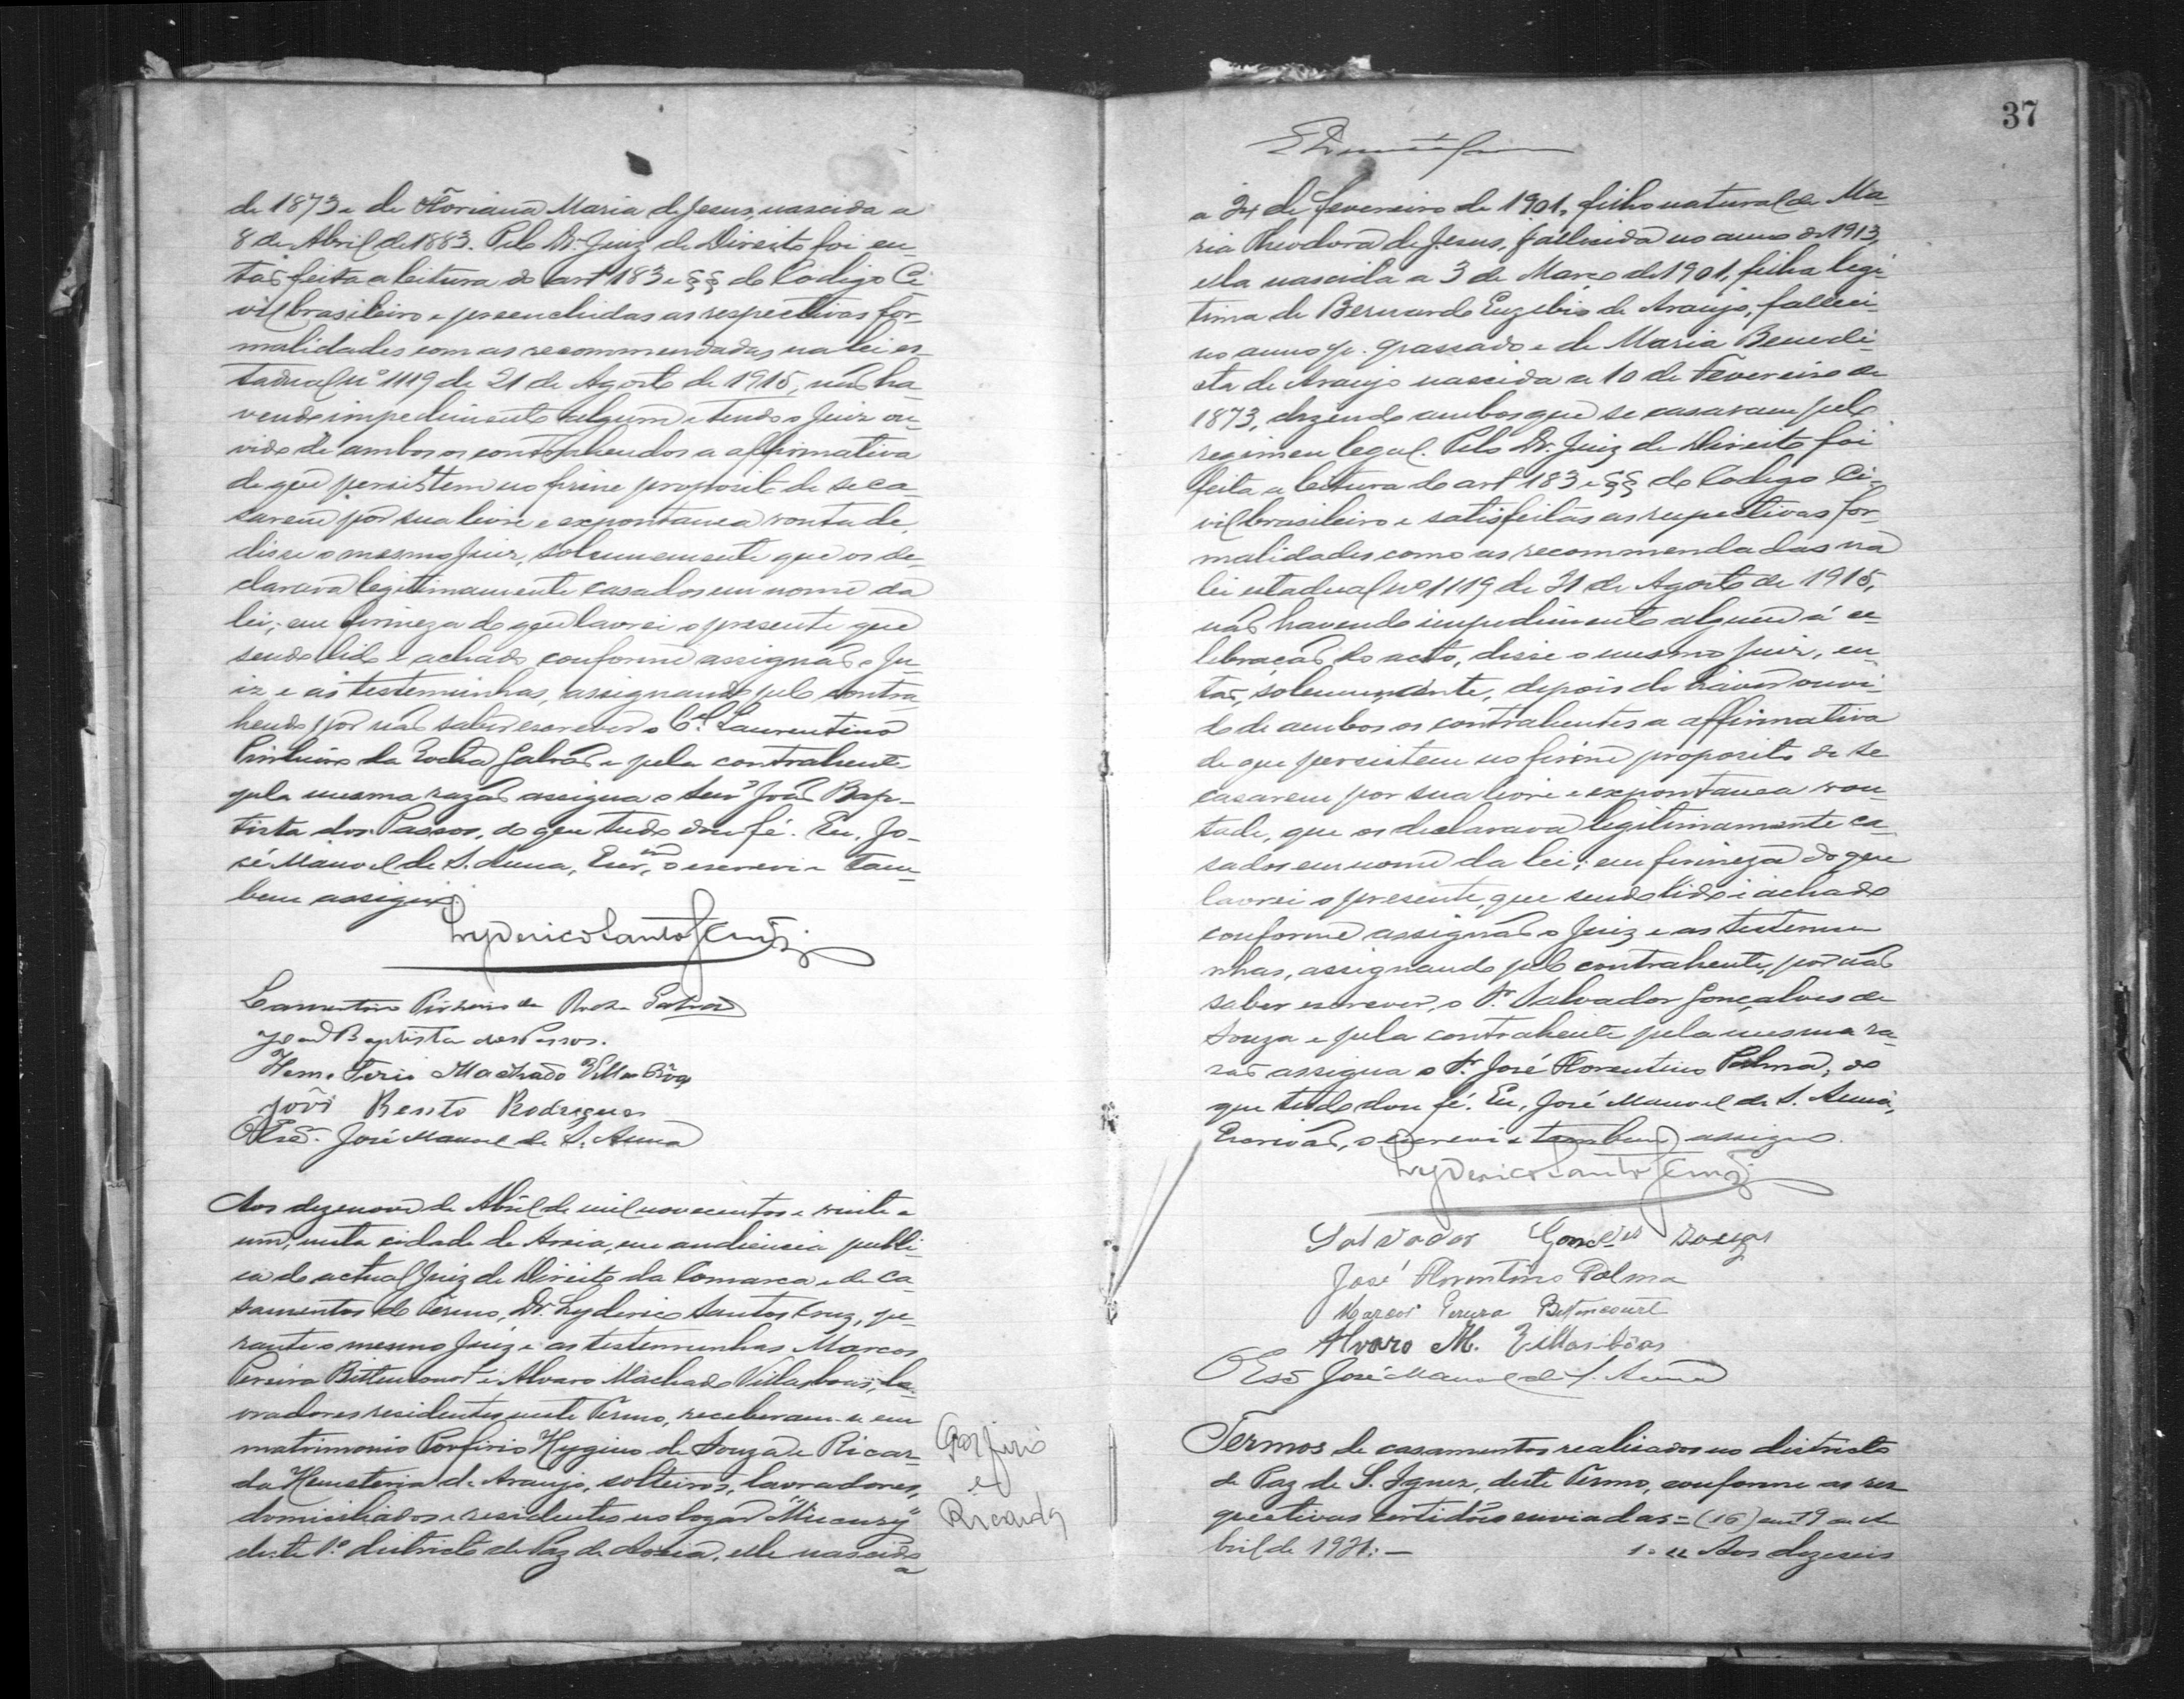 de 1873 e de Floriana Maria de Jesus, nascida a
8 de Abril de 1883. Pelo Dr. Juiz de Direito foi en-
tão feita a leitura do art 183 e §§ do Codigo Ci-
vil brasileiro e preenchidas as respectivas for-
malidades com as recommendadas na lei es-
tadual nº 1119 de 21 de Agosto de 1915, não ha-
vendo impedimento algum e tendo o Juiz ou-
vido de ambos os contrahendos a affirmativa
de que persistem no firme proposito de se ca-
sarem por sua livre e expontanea vontade,
disse o mesmo Juiz, solemnemente que os de-
clarava legitimamente casados em nome da
lei; em firmeza do que lavrei o presente que
sendo lido e achado conforme assignão o Ju-
iz e as testeminhas, assignando pelo contra
hendo por não saber escrever o Cel Laurentino
Pinheiro da Rocha Galvão e pela contrahente
pela mesma razão assigna o Senr João Bap-
tista dos Passos, do que tudo dou fé. Eu, Jo-
sé Manoel de S. Anna, Escrm, o escrevi e tam-
bem assigno.
Lyderico Santos Cruz
Laurentino Pinheiro da Rocha Galvão
João Baptista dos Passos.
Hemeterio Machado Villas Bôas
José Bento Rodrigues
O Esc. José Manoel de S. Anna
Aos dezenove de Abril de mil novecentos e vinte e
um, nesta cidade de Areia, em audiencia publi-
ca do actual Juiz de Direito da Comarca e de Ca-
samentos do Termo, Dr. Lyderico Santos Cruz, pe-
rante o mesmo Juiz e as testemunhas Marcos
Pereira Bittencourt e Alvaro Machado Villasboas, la-
vradores residentes neste Termo, receberam-se em
matrimonio Porfirio Hygino de Souza e Ricar-
da Hemeteria de Araujo, solteiros, lavradores,
domiciliados e residentes no logar "Mucury"
deste 1º districto de Paz de Areia, elle nascido
a
Porfirio
e
Ricarda
37
a 24 de fevereiro de 1901, filho natural de Ma-
ria Theodora de Jesus, fallecida no anno de 1913,
ella nascida a 3 de Março de 1901, filha legi-
tima de Bernardo Euzebio de Araujo, falleci-
no anno p. passado e de Maria Benedi-
cta de Araujo nascida a 10 de Fevereiro de
1873, dizendo ambos que se casavam pelo
regimen legal. Pelo Dr. Juiz de Direito foi
feita a leitura do art 183 e §§ do Codigo Ci-
vil brasileiro e satisfeitas as respectivas for-
malidades como as recommendadas na
lei estadual nº 1119 de 21 de Agosto de 1915,
não havendo impedimento algum á ce-
lebração do acto, disse o mesmo juiz, en-
tão, solemnemente, depois de haver ouvi-
do de ambos os contrahentes a affirmativa
de que persistem no firme proposito de se
casarem por sua livre e expontanea von-
tade, que os declarava legitimamente ca-
sados em nome da lei; em firmeza do que
lavrei o presente, que sendo lido e achado
conforme assignão o Juiz e as testemu-
nhas, assignando pelo contrahente, por não
saber escrever, o Sr. Salvador Gonçalves de
Souza e pela contrahente pela mesma ra-
zão assigna o Sr. José Florentino Palma; do
que tudo dou fé. Eu, José Manoel de S. Anna,
Escrivão, o escrevi e tambem assigno.
Lyderico Santos Cruz
Salvador Gonçalves Souza
José Florentino Palma
Marcos Pereira Bittencourt
Alvaro M. Villas-bôas
O Esc José Manoel de S. Anna
Termos de casamentos realisados no districto
de Paz de S. Ignez, deste Termo, conforme as res-
pectivas certidões enviadas = (16) em 19 de A-
bril de 1921: — 1.ª Aos dezeseis